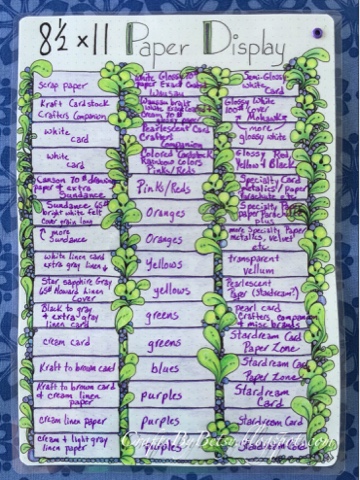 8½ x 11 Paper Display
scrap paper
Kraft Cardstock
Crafters Companion
white
card
white
card
Canson 70# drawing
paper + extra
Sundance
Sundance 65#
bright white felt
cover grain long
↑ more
Sundance
white linen card
extra gray linen ↓
Star sapphire Gray
65# Howard Linen
Cover
Black to gray
+ extra gray
linen card
cream card
Kraft to brown card
Kraft to brown card
+ cream linen
paper
cream linen paper
cream + light gray
linen paper
White Glossy 70#
paper Exact
Wausau
Wausau
Cream 70#
Pearlescent Card
Crafters
Companion
Colored Cardstock
Rainbow Colors
Pinks/Reds
Pinks/Reds
Oranges
Oranges
Yellows
yellows
greens
greens
blues
purples
purples
purples
Semi-Glossy
white
Card
Glossy White
100# Cover
Mohawk
↑ more
glossy white
Glossy Red
Yellow + Black
Specialty Card
metalics/ Paper
Parachute etc
Specialty
paper Parachute
plus
more Specialty Paper
metalics, velvet
etc
transparent
vellum
Pearlescent
Paper (Stardream?)
pearl card
Crafters, companion
+ misc brands
Stardream Card
Paper Zone
Stardream Card
Paper Zone
Stardream
Card
Stardream Card
Stardream Card
CraftsByBetsy.blogspot.com